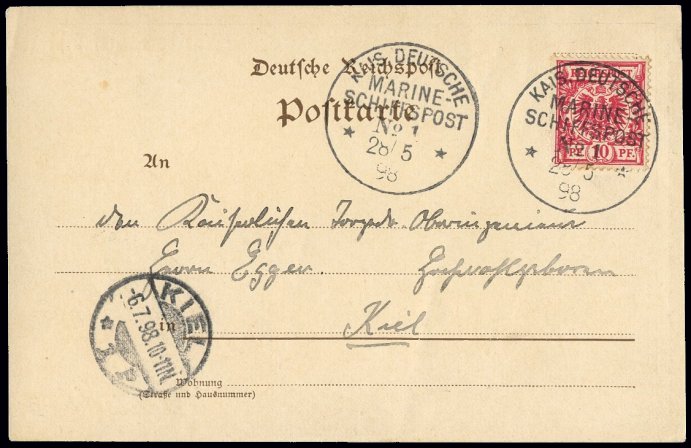 Deutsche Reichspost
Postkarte
KAIS. DEUTSCHE
MARINE-
SCHIFFSPOST
No 1
28/5
98
KAIS. DEUTSCHE
MARINE-
SCHIFFSPOST
No 1
28/5
98
10 PF.
An
den Kaiserlichen Torpedo Oberingenieur
Herrn Egger. Hochwohlgeboren
in Kiel
KIEL
-6.7.98.10-11N.
Wohnung
(Straße und Hausnummer)